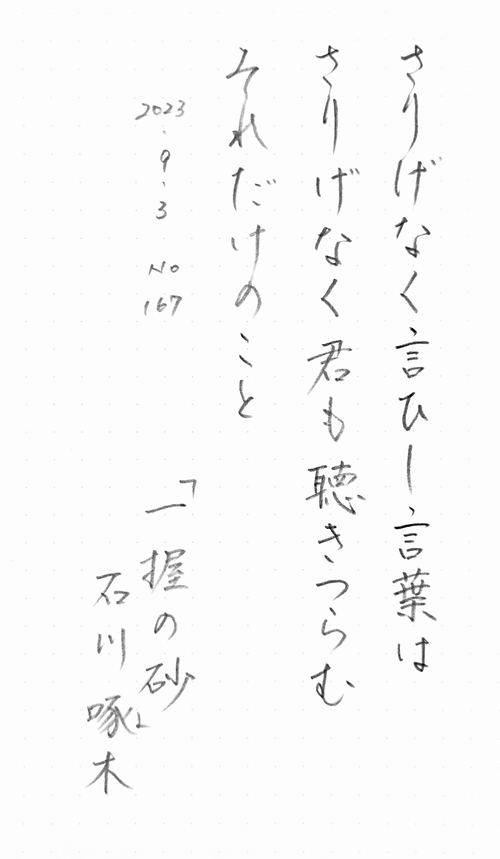 さりげなく言ひし言葉は
さりげなく君も聴きつらむ
それだけのこと
2023.9.3 No 167
「一握の砂」
石川啄木